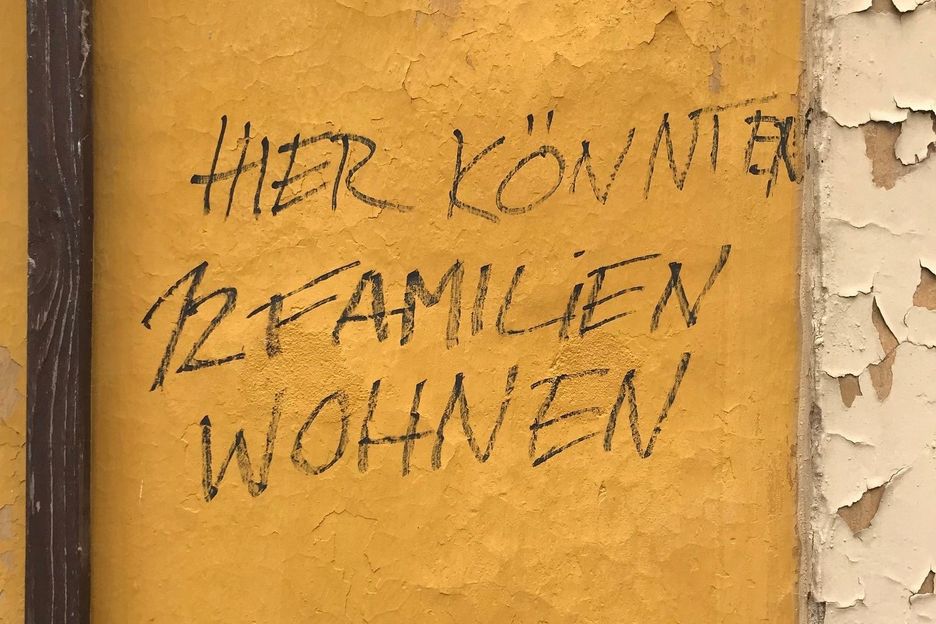 HIER KÖNNTEN
12 FAMiLiEN
WOHNEN